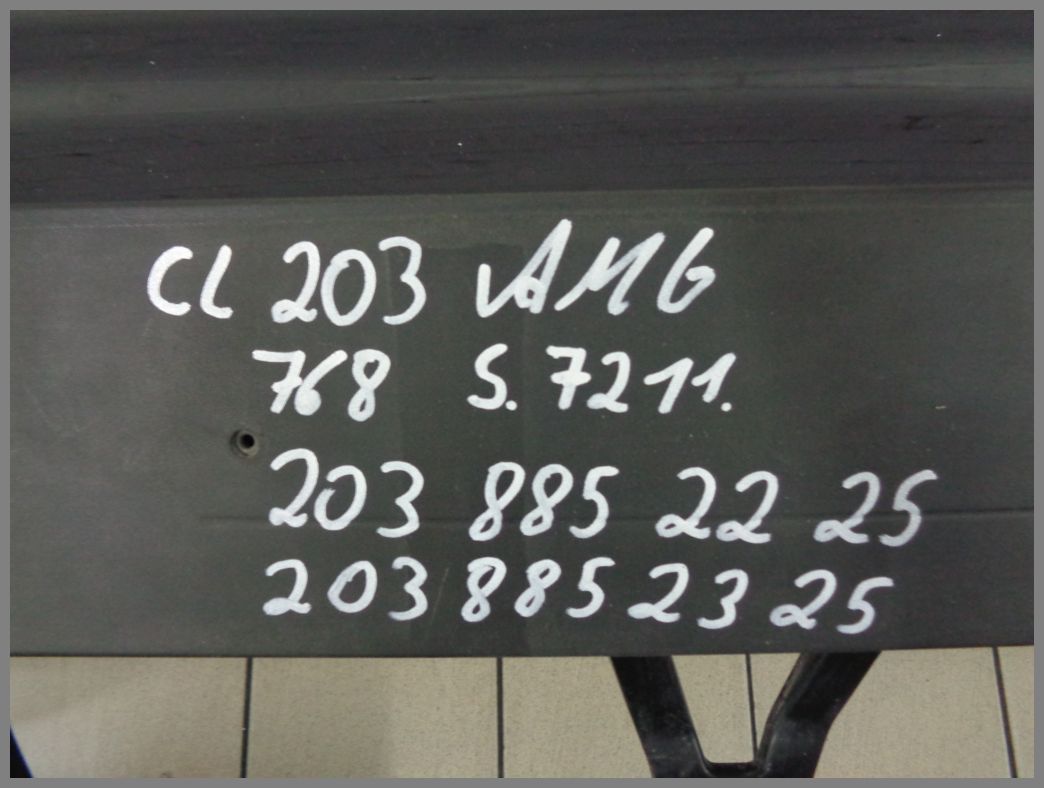 CL 203 AMG
768 S. 7211.
203 885 22 25
203 885 23 25